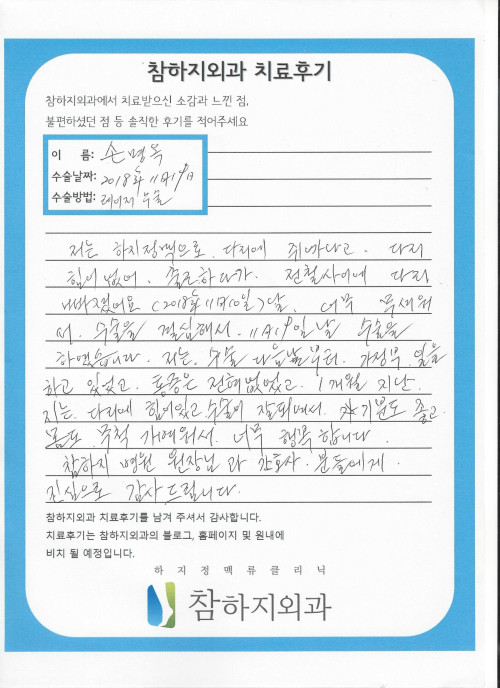 참하지외과 치료후기
참하지외과에서 치료받으신 소감과 느낀 점,
불편하셨던 점 등 솔직한 후기를 적어주세요
이 름: 손명옥
수술날짜: 2018년 11月19日
수술방법: 레이저 수술
저는 하지정맥으로 다리에 쥐나고. 다리
힘이 없어. 출근하다가. 전철사이에 다리
빠졌어요 (2018年 11月10일) 날. 너무 무서워
서. 수술을 결심해서. 11月19일날 수술을
하였습니다. 저는. 수술 다음날부터. 가정부 일을
하고 있었고. 통증은 전혀 없었고. 1개월 지난.
지는. 다리에 힘이있고 수술이 잘되여서. 기분도 좋고.
몸도 무척 가벼워서. 너무 행복합니다.
참하지 병원 원장님과 간호사. 분들에게.
진심으로 감사드립니다.
참하지외과 치료후기를 남겨 주셔서 감사합니다.
치료후기는 참하지외과의 블로그, 홈페이지 및 원내에
비치 될 예정입니다.
하지정맥류클리닉
참하지외과